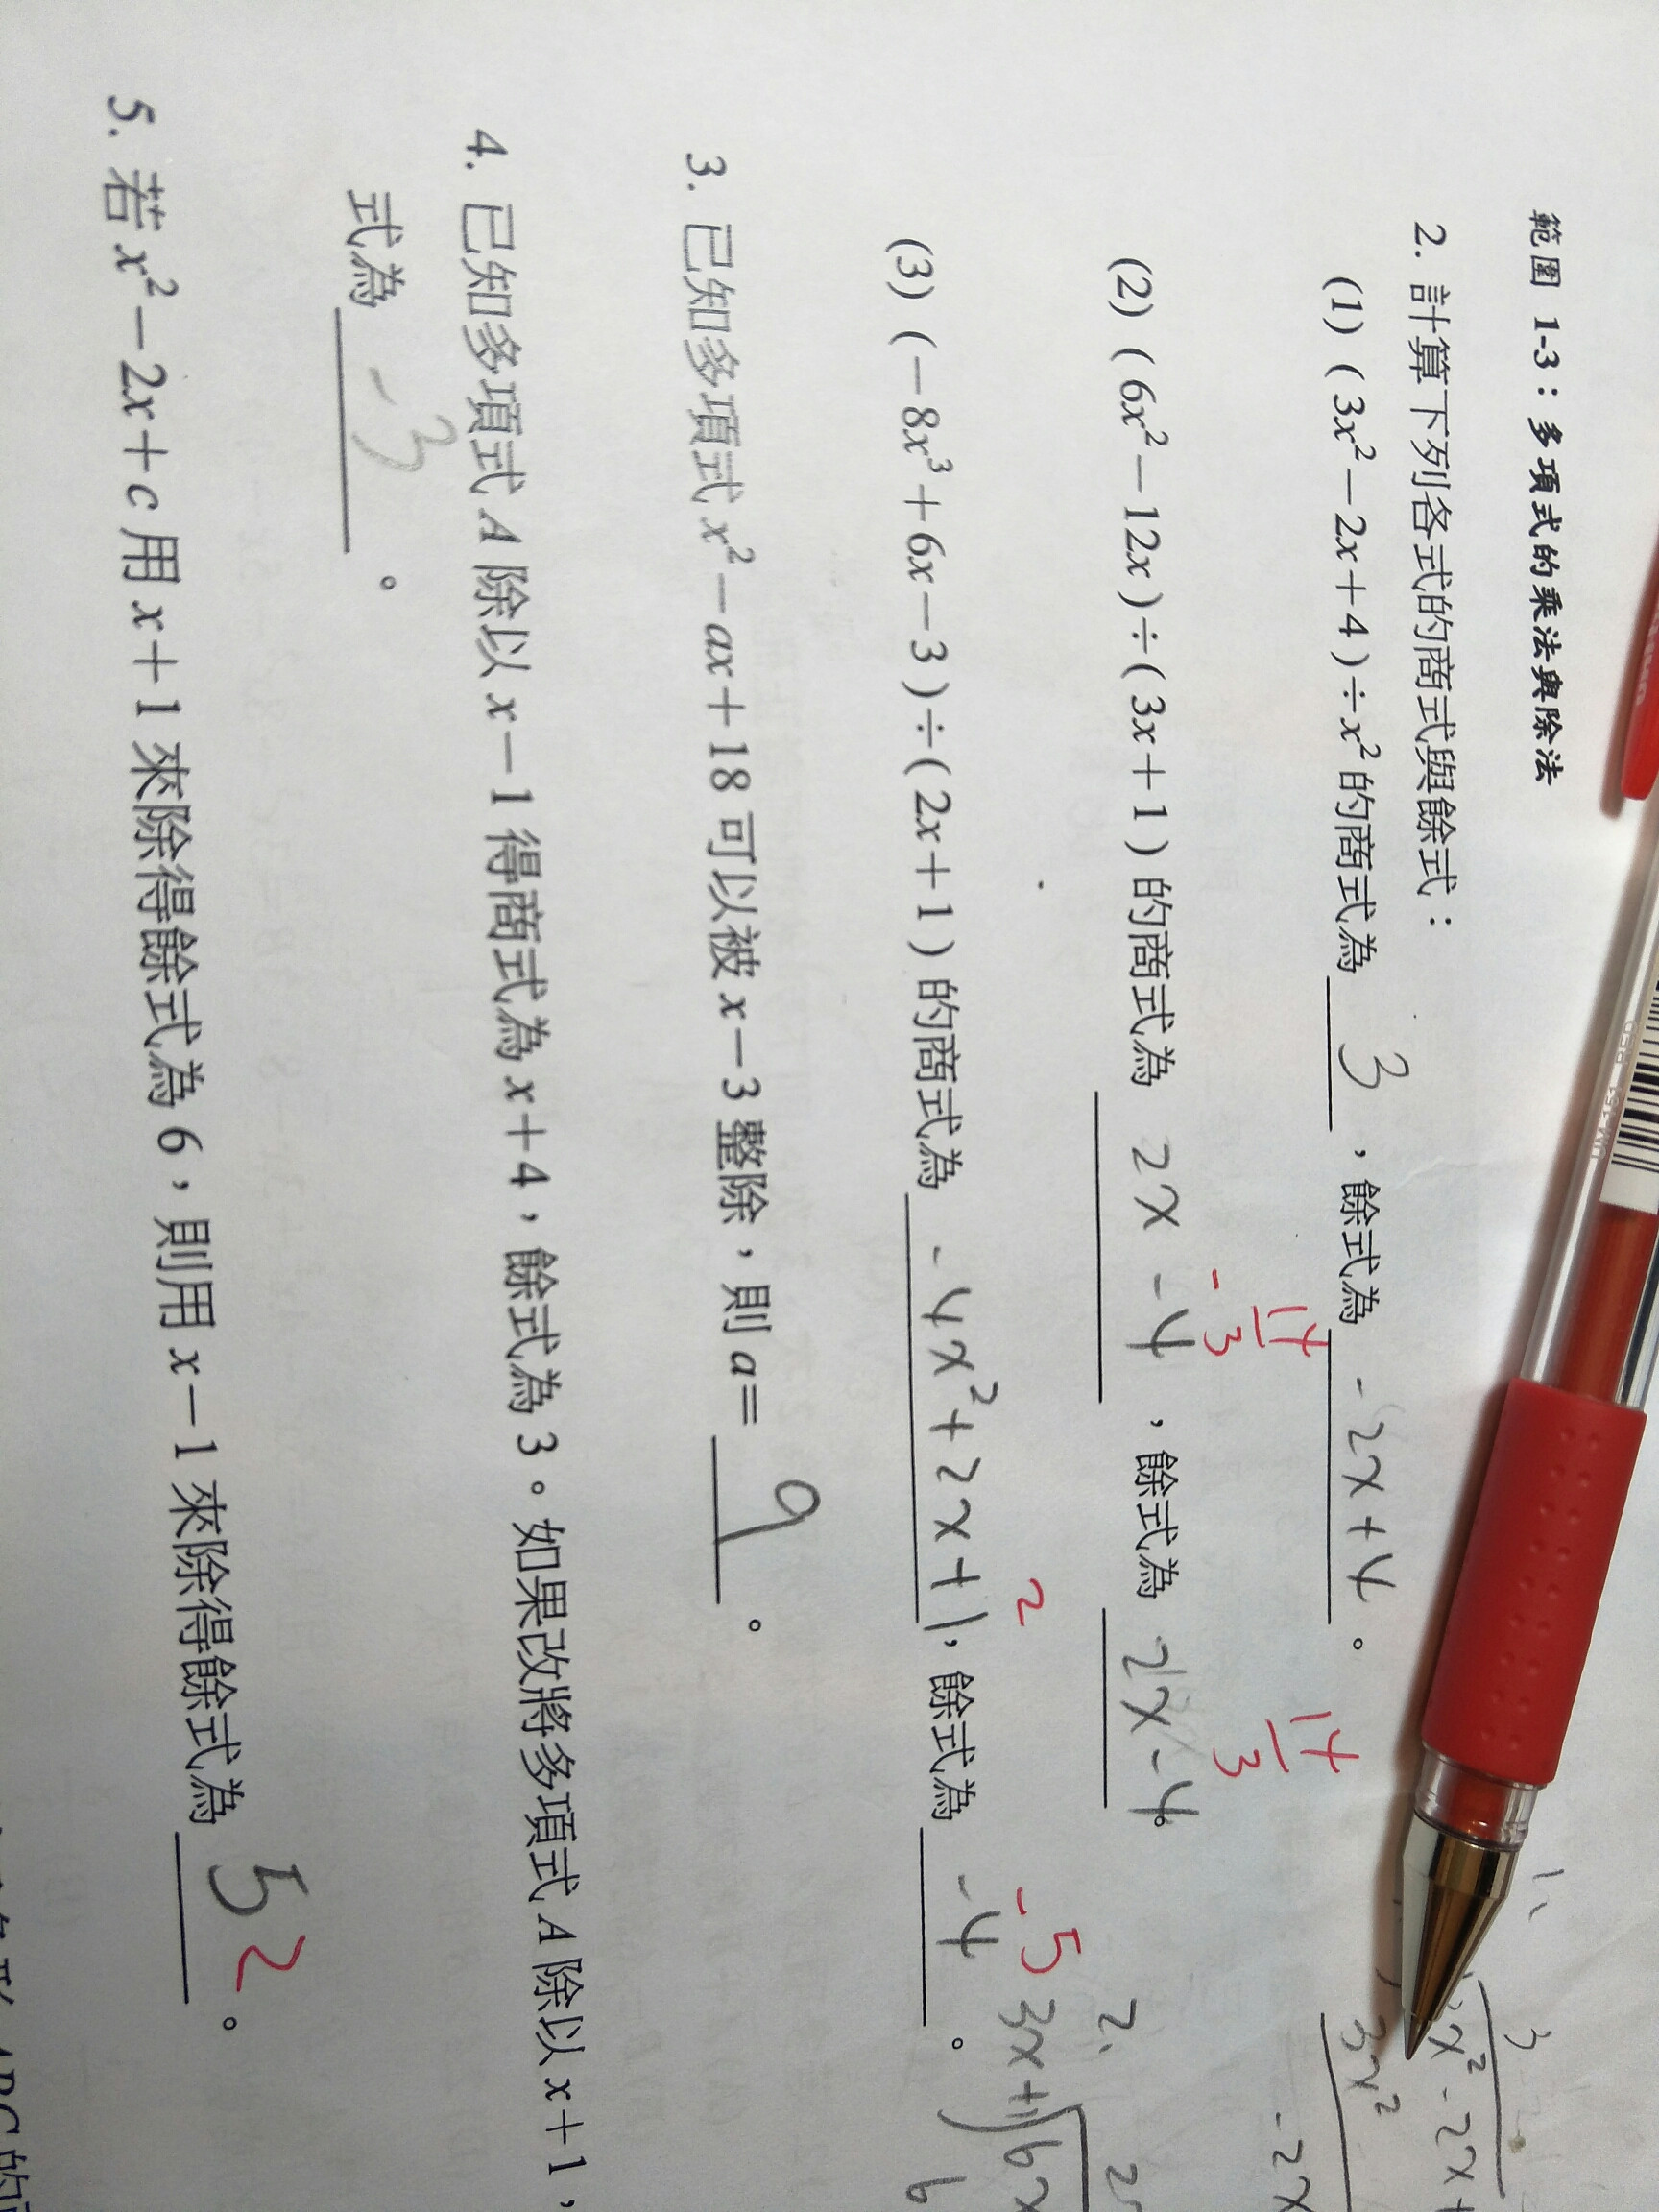 範圍 1-3：多項式的乘法與除法
2. 計算下列各式的商式與餘式：
(1) (3x²－2x＋4)÷x²的商式為 3 ，餘式為 -2x+4 。
- 14/3 14/3
(2) (6x²－12x)÷(3x＋1)的商式為 2x -4 ，餘式為 2x-4 。
2 -5
(3) (－8x³＋6x－3)÷(2x＋1)的商式為 -4x²+2x+1，餘式為 -4 。
3. 已知多項式 x²－ax＋18 可以被 x－3 整除，則 a＝ 9 。
4. 已知多項式 A 除以 x－1 得商式為 x＋4，餘式為 3。如果改將多項式 A 除以 x＋1，
式為 -3 。
5. 若 x²－2x＋c 用 x＋1 來除得餘式為 6，則用 x－1 來除得餘式為 5 2 。
1、
3
x²-2x+
3x²
-2x
2、
3x+1)6x
6